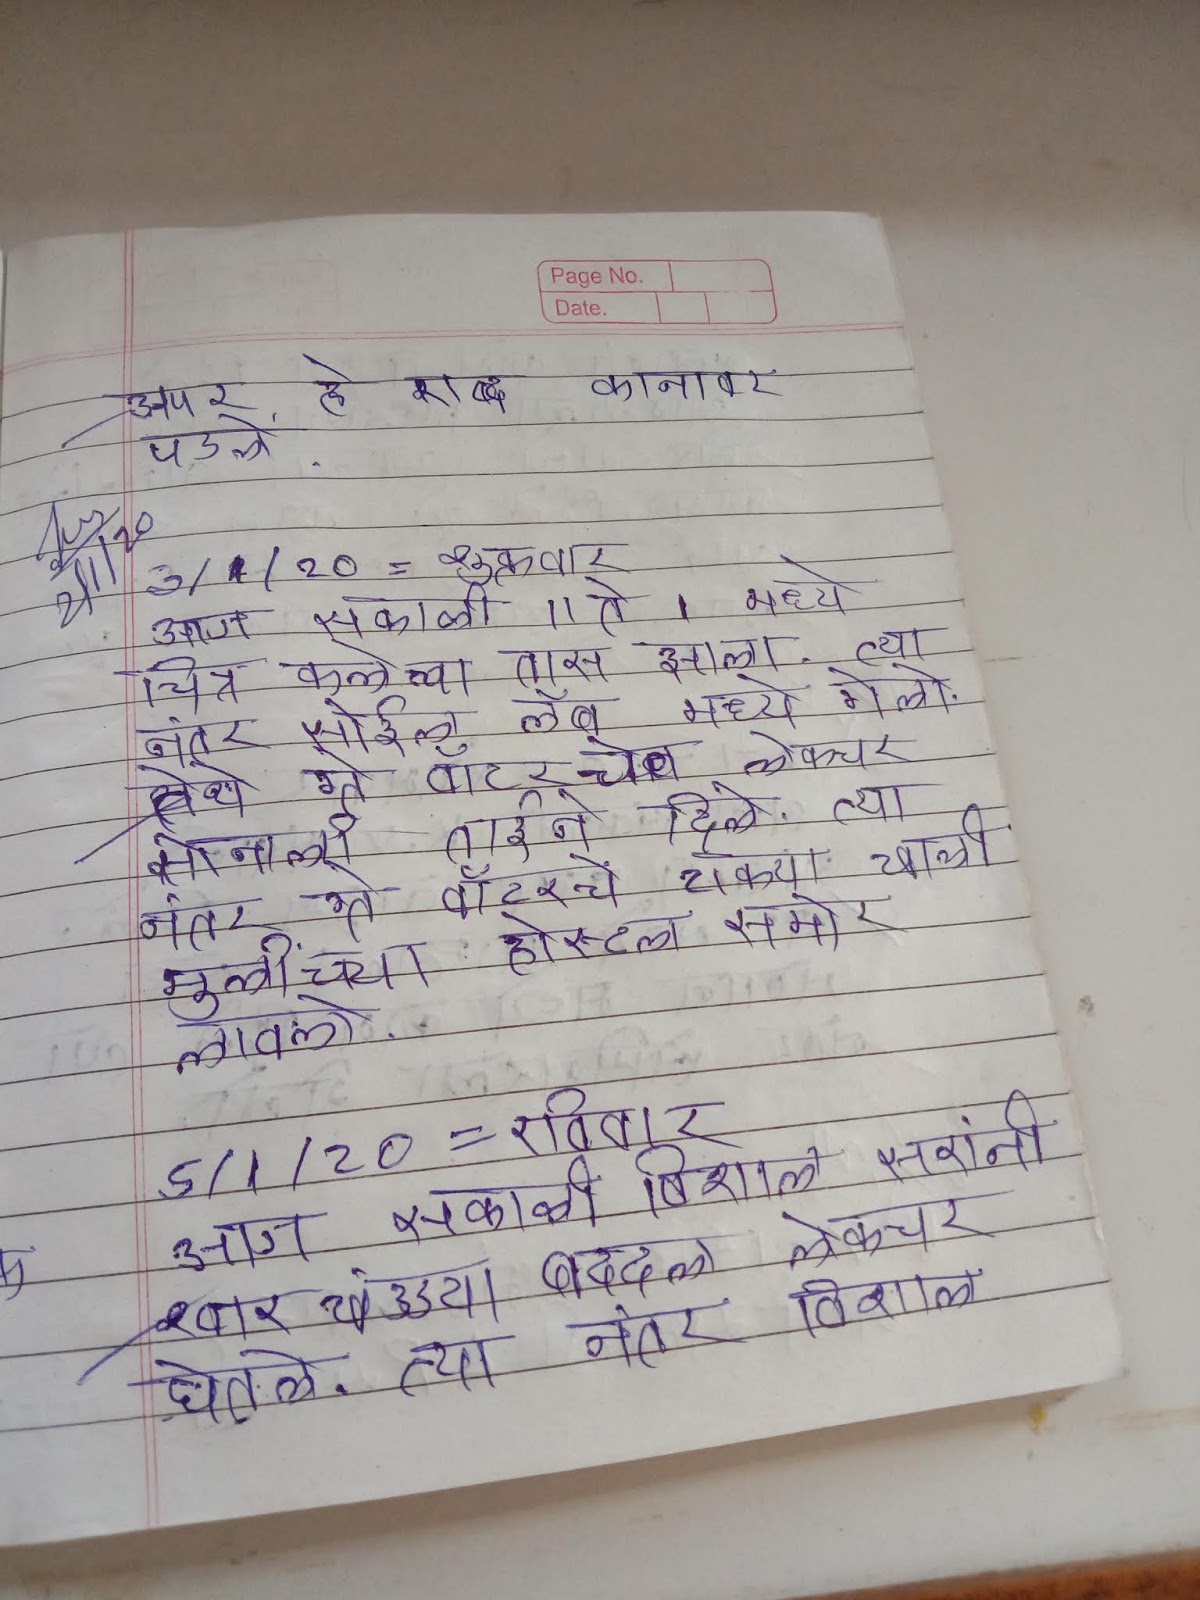 Page No.
Date.
अपर, हे शब्द कानावर
पडले.
3/1/20 = शुक्रवार
आज सकाळी 11 ते 1 मध्ये
चित्र कलेचा तास झाला. त्या
नंतर सोईल लॅब मध्ये गेलो.
तेथे ग्रे वॉटरचे लेक्चर
सोनाली ताईने दिले. त्या
नंतर ग्रे वॉटरचे टाक्या खाली
मुलींच्या होस्टल समोर
लावलो.
5/1/20 = रविवार
आज सकाळी विशाल सरांनी
श्वार खंड्या बददल लेक्चर
घेतले. त्या नंतर विशाल